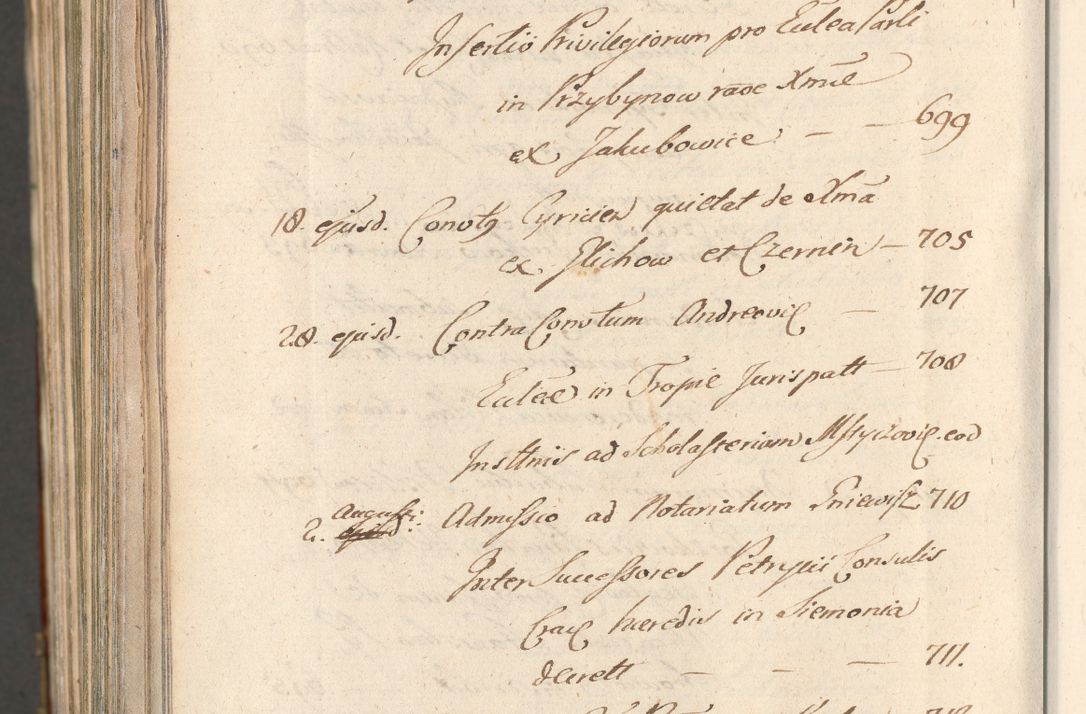 Insertio Privilegiorum pro Eccleа Parli
in Przybynow raõe Xmæ
ex Jakubowice — — 699
18. ejusd. Convtꝯ Cyricien quietat de Xmã
ex Glichow et Czernin — 705
28. ejusd. Contra Convtum Andreovieñ — 707
Eccleæ in Tropie Jurispatt — 708
Insttnis ad Scholasteriam Mstyczovieñ. eod
2. Augusti: Admissio ad Notariatum Gniewisz 710
Inter Successores Petrycii Consulis
Crac hæredis in Siemonia
decrett — — — 711.